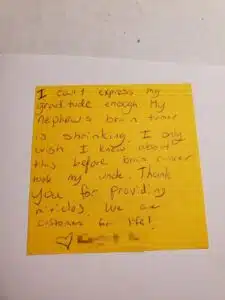 I can't express my
gratitude enough My
nephews brain tumor
is shrinking. I only
wish I knew about
this before brain cancer
took my uncle. Thank
you for providing
articles. We are
customers for life!